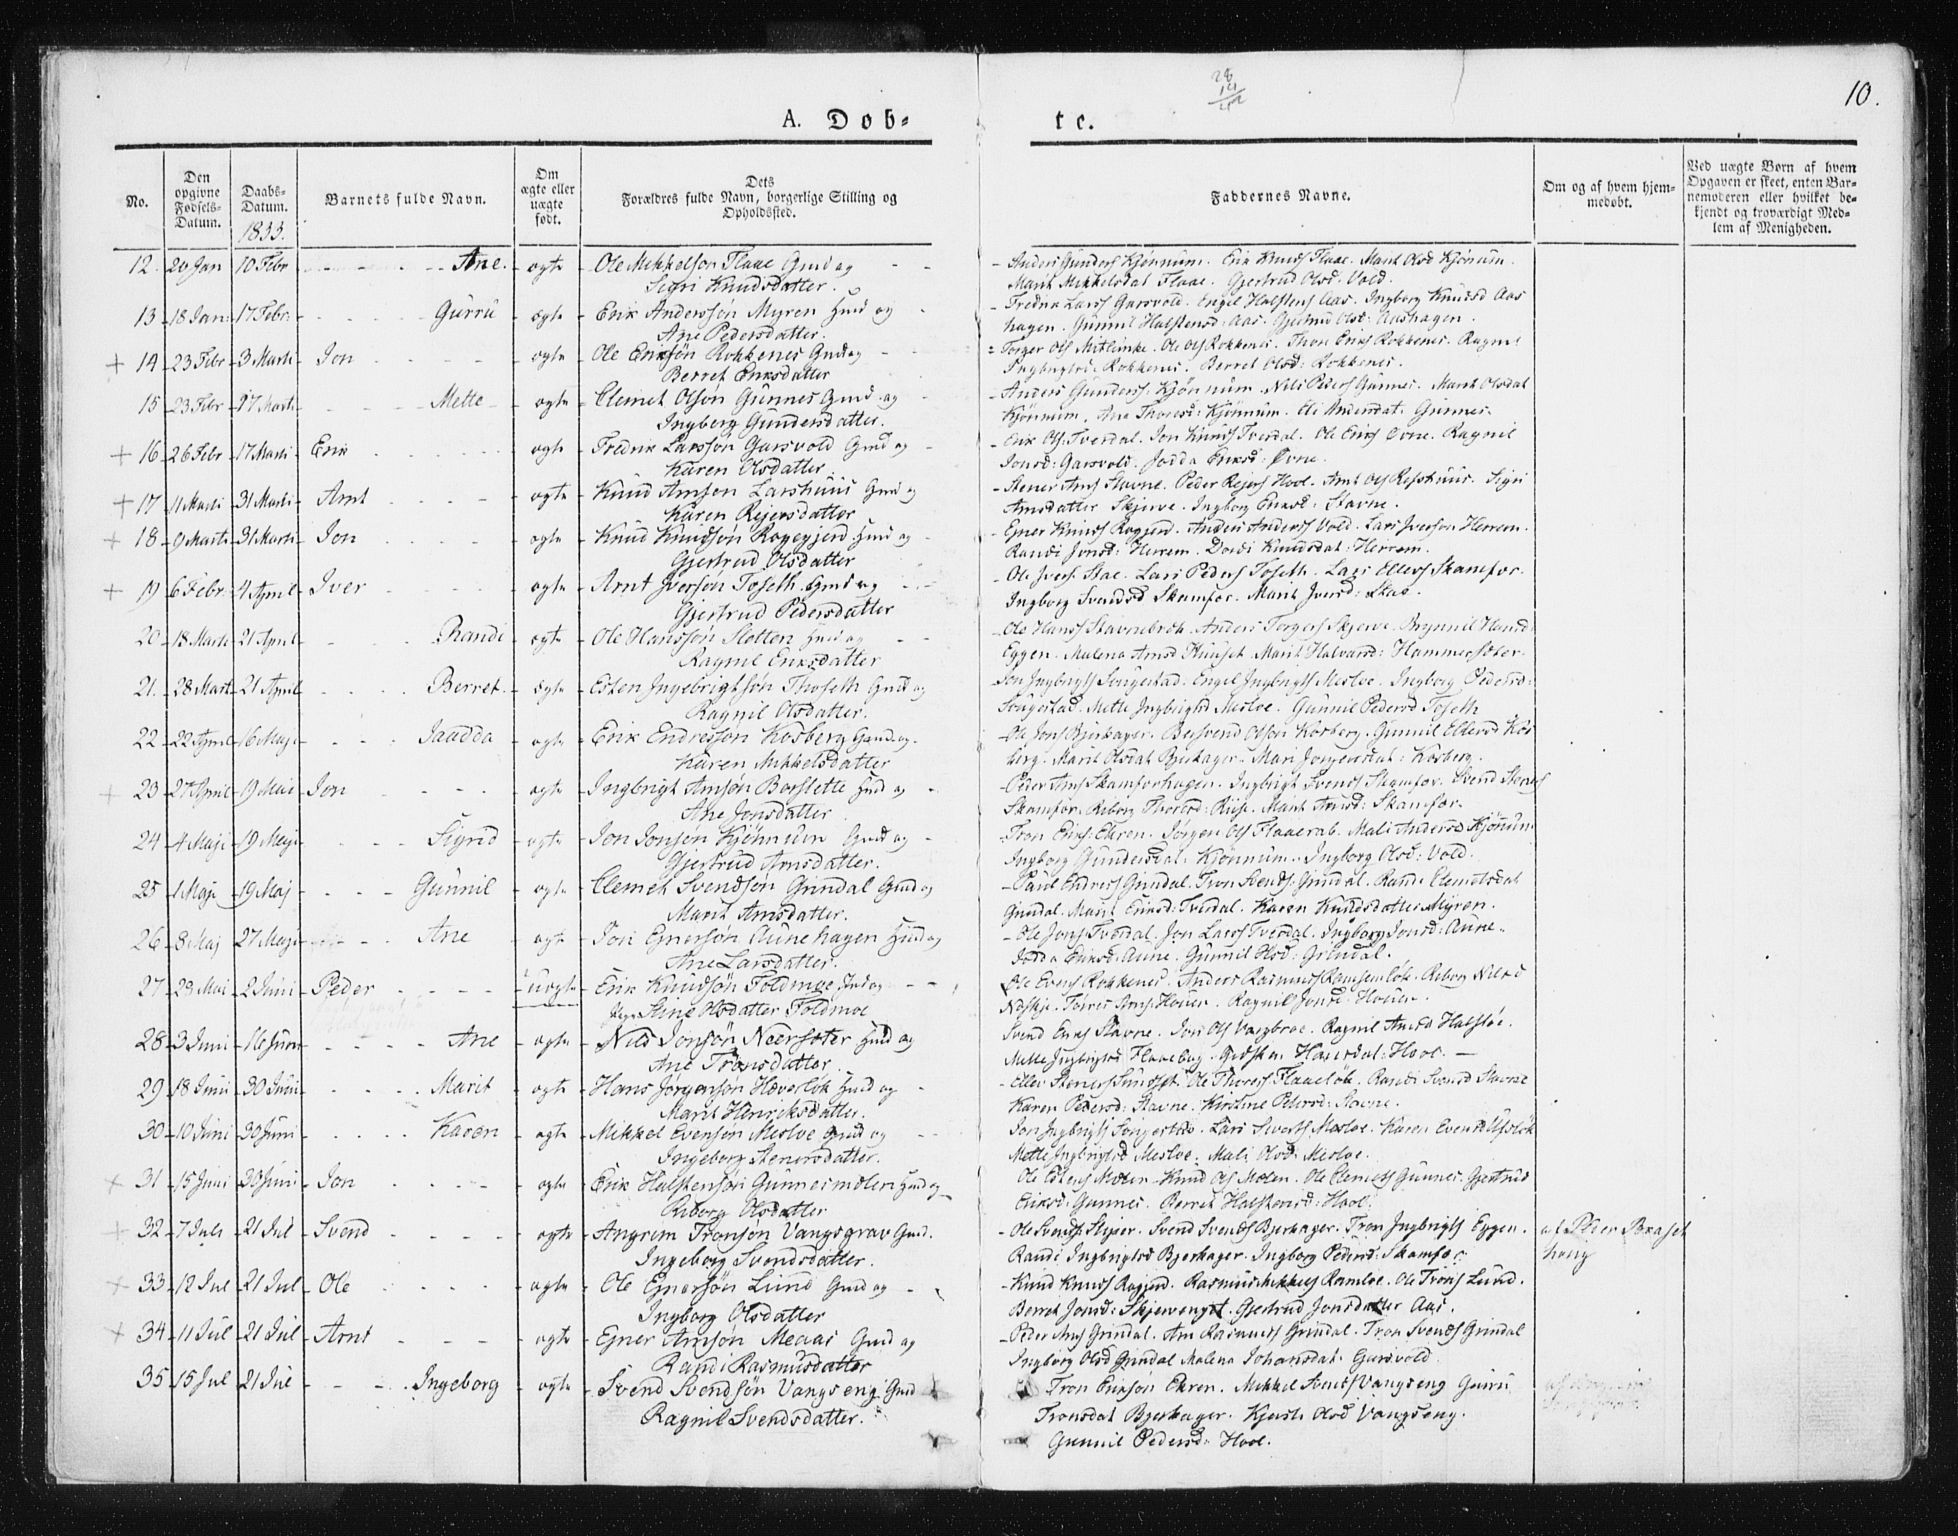 28
10.
A. Døb-
te.
No.
Den opgivne Fødsels-Datum.
Daabs-Datum.
1833.
Barnets fulde Navn.
Om ægte eller uægte født.
Dets Forældres fulde Navn, borgerlige Stilling og Opholdssted.
Faddernes Navne.
Om og af hvem hjem-medøbt.
Ved uægte Børn af hvem Opgaven er skeet, enten Bar-nemoderen eller hvilket be-kjendt og troværdigt Med-lem af Menigheden.
12. 20 Jan 10 Febr Ane. ægte Ole Mikkelsøn Flaae Gmd og
Sigri Knudsdatter.
Anders Gunders Kjønnum. Erik Knuds Flaae. Marit Olsd Kjønum.
Marit Mikkelsdat Flaae. Gjertrud Olsd. Vold.
13 18 Jan 17 Febr. Gurru ægte Erik Anderssøn Myren Huusmd og
Ane Pedersdatter.
Fredrik Larss Garsvold. Engel Halstens Aas. Ingborg Knudsd Aas
hagen. Gunnil Halstensd: Aas. Gjertrud Olsd: Aashagen.
+ 14 23 Febr 3 Marts Jon ægte Ole Eriksøn Rokkenes Gmd og
Berret Eriksdatter
Torger Ols. Ole Ols Rokkenes. Thore Eriks Rokkenes. Ragnil
Rokkenes. Berret Olsd: Rokkenes.
15 23 Febr 17 Marts Mette ægte Clemet Olsøn Gunnes Gmd og
Ingberg Gundersdatter.
Anders Gunders. Kjønnum. Nils Peders Gunnes. Marit Olsdat
Kjønnum. Ane Thoresd: Kjønnum. Eli Andersdat: Gunnes.
+ 16 26 Febr 17 Marts Erik ægte Fredrik Larssøn Garsvold Gmd og
Karen Olsdatter.
Erik Ols. Tverdal. Jon Knuds Tverdal. Ole Eriks Øvne. Ragnil
Jonsd: Garsvold. Jodda Eriksd: Øvne.
+ 17 11 Marts 31 Marts Arnt ægte Knud Arnsen Larshuus Gmd og
Karen Rejersdatter
Stener Arns Stavne. Peder Rejers Hool. Arnt Ols Resthuus. Sigri
Arnsdatter Skjerve. Ingborg Eriksd: Stavne.
+ 18 9 Marts 31 Marts Jon ægte Knud Knudsøn Rogegjerd Hmd og
Gjertrud Olsdatter
Ejner Knuds Roggjerd. Anders Anders Vold. Lars Iversøn Herrem.
Randi Jonsd: Herrem. Dordi Knudsdat: Herrem.
+ 19 6 Febr. 4 April Iver ægte Arnt Iversøn Toseth Gmd og
Gjertrud Pedersdatter
Ole Ivers. Stae. Lars Peders Toseth. Lars Ellevs Skamfør.
Ingborg Svendsd Skamfør. Marit Iversd: Stae.
20 18 Marts 21 April Randi ægte Ole Hanssøn Sletten Hmd og
Ragnil Eriksdatter
Ole Hans Stavnebrek. Anders Torgers Skjerve. Brynnil Hansd:
Eggen. Malena Arnsd. Marit Halvarsd: Hammersæter.
21. 28 Mart 21 April Berret. ægte Esten Ingebrigtsøn Thoseth Gmd og
Ragnil Olsdatter.
Jon Ingbrigts Songestad. Engel Ingbrigts Mesloe. Ingborg Pedersd:
Songestad. Mette Ingbrigtsd Mesloe. Gunnil Pedersd Toseth
22 22 April 16 Maji Jaadda ægte Erik Endressøn Kosberg Gmd og.
Karen Mikkelsdatter
Ole Jons Bjerkager. Bersvend Olsøn Kosberg. Gunnil Ellevsd Kos
berg. Marit Olsdat Bjerkager. Mari: Kosberg.
+ 23 27 April 19 Mai Jon ægte Ingbrigt Arnsøn Borslette Hmd og
Ane Jonsdatter.
Peder Arns Skamforhagen. Ingbrigt Svends Skamfor. Svend Steners
Skamfor. Reborg Thoresd: Riise. Marit Arnsd: Skamfor.
24 4 Maji 19 Maji Sigrid ægte Jon Jonsøn Kjønnum Gmd og
Gjertrud Arnsdatter.
Tron Eriks. Ekren. Jørgen Ols Flaaerab. Mali Andersd Kjønnum
Ingborg Gundersdat: Kjønnum. Ingborg Olsd: Vold.
25 1 Maji 19 Maj Gunnil ægte Clemet Svendsøn Grindal Gmd og
Marit Arnsdatter.
Paul Endres Grindal. Tron Svends. Grindal. Randi Clemetsdat
Grindal. Marit Eriksd: Tverdal. Karen Knudsdatter Myren.
26 8 Maj 27 Maji Ane ægte Jon Ejnersøn Aunehagen Huusmd og
Ane Larsdatter.
Ole Jons Tverdal. Jon Larss Tverdal. Ingborg Jonsd: Aune.
Jodda Eriksd: Aune. Gunnil Olsd: Grindal.
27 29 Mai 2 Juni Peder uægte Erik Knudsøn Foldmoe Inds og
Pige Stine Olsdatter Foldmoe
Ole Evens Rokkenes. Anders Rasmus. Reborg Nilsd
Neskje. Tørres Arns. Houen. Ragnil Jonsd: Houen.
28 3 Juni 16 Juni Ane ægte Nils Jonsøn Neersæter Hmd og
Ane Tronsdatter.
Svend Eriks Stavne. Jon Ols Vangbroe. Ragnil Arnsd Halsløe.
Mette Ingbrigtsd Flaaebug. Gedsken Hansdat: Hool.
29 18 Juni 30 Juni Marit ægte Hans Jørgensøn Hæverløk Hmd og
Marit Henriksdatter.
Ellev Steners Sundset. Ole Thores Flaaeløk. Randi Svensd Stavne
Karen Pedersd: Stavne. Kirstine Petersd: Stavne.
30 10 Juni 30 Juni Karen ægte Mikkel Evensøn Mesloe Gmd og
Ingeborg Stenersdatter.
Jon Ingbrigts Songestad. Lars Siverts Mesloe. Karen Evensd
Mette Ingbrigtsd Mesloe. Mali Olsd: Mesloe.
+ 31 15 Juni 30 Juni Jon ægte Erik Halstensøn Gunnesmølen Hmd og
Reborg Olsdatter
Ole Estens Mølen. Knud Ols Mølen. Ole Clemets Gunnes. Gjertrud
Eriksd: Gunnes. Berret Halstensd: Hool.
+ 32 7 Juli 21 Jul Svend ægte Angrim Tronsøn Vangsgrav Gmd.
Ingeborg Svendsdatter.
Ole Svends Stuen. Svend Svends Bjerkager. Tron Ingbrigts Eggen.
Randi Ingbrigtsd Bjerkager. Ingborg Pedersd: Skamfor
af Peder Braset
haug
+ 33 12 Jul 21 Jul Ole ægte Ole Ejnersøn Lund Gmd og
Ingborg Olsdatter
Knud Knuds Roggjerd. Rasmus Mikkels Ramloe. Ole Trons Lund.
Berret Jonsd: Skjervengst. Gjertrud Jonsdatter Aas.
+ 34 11 Jul 21 Jul Arnt ægte Ejner Arnsøn Meaas Gmd og
Randi Rasmusdatter
Peder Arns Grindal. Arn Rasmus Grindal. Tron Svends Grindal
Ingborg Olsd Grindal Malena Johansdat: Garsvold.
35 15 Jul 21 Jul Ingeborg ægte Svend Svendsøn Vangseng Gmd
Ragnil Svendsdatter.
Tron Eriksøn Ekren. Mikkel Svends Vangseng Guru
Tronsdat Bjerkager. Kjersti Olsd Vangseng.
Gunnil Pedersd: Hool.